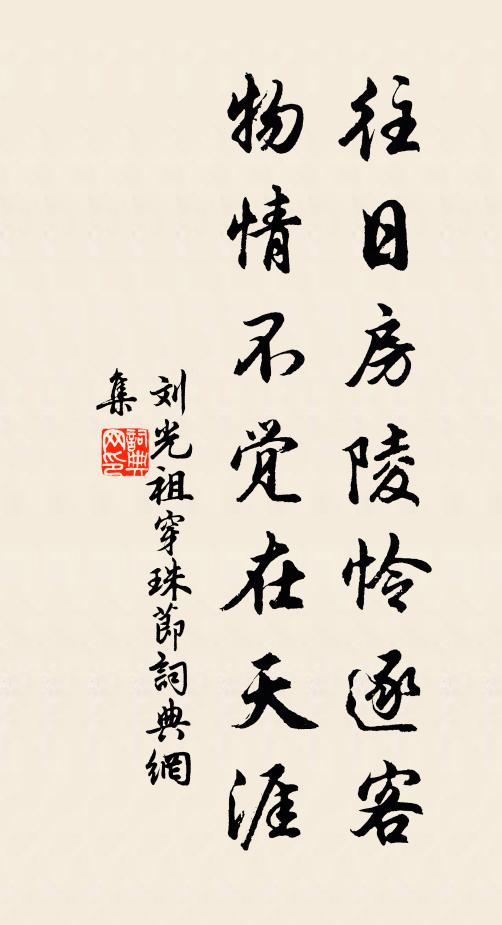 往日房陵怜逐客
物情不觉在天涯
刘光祖穿珠节詞典網
集
詞典网印